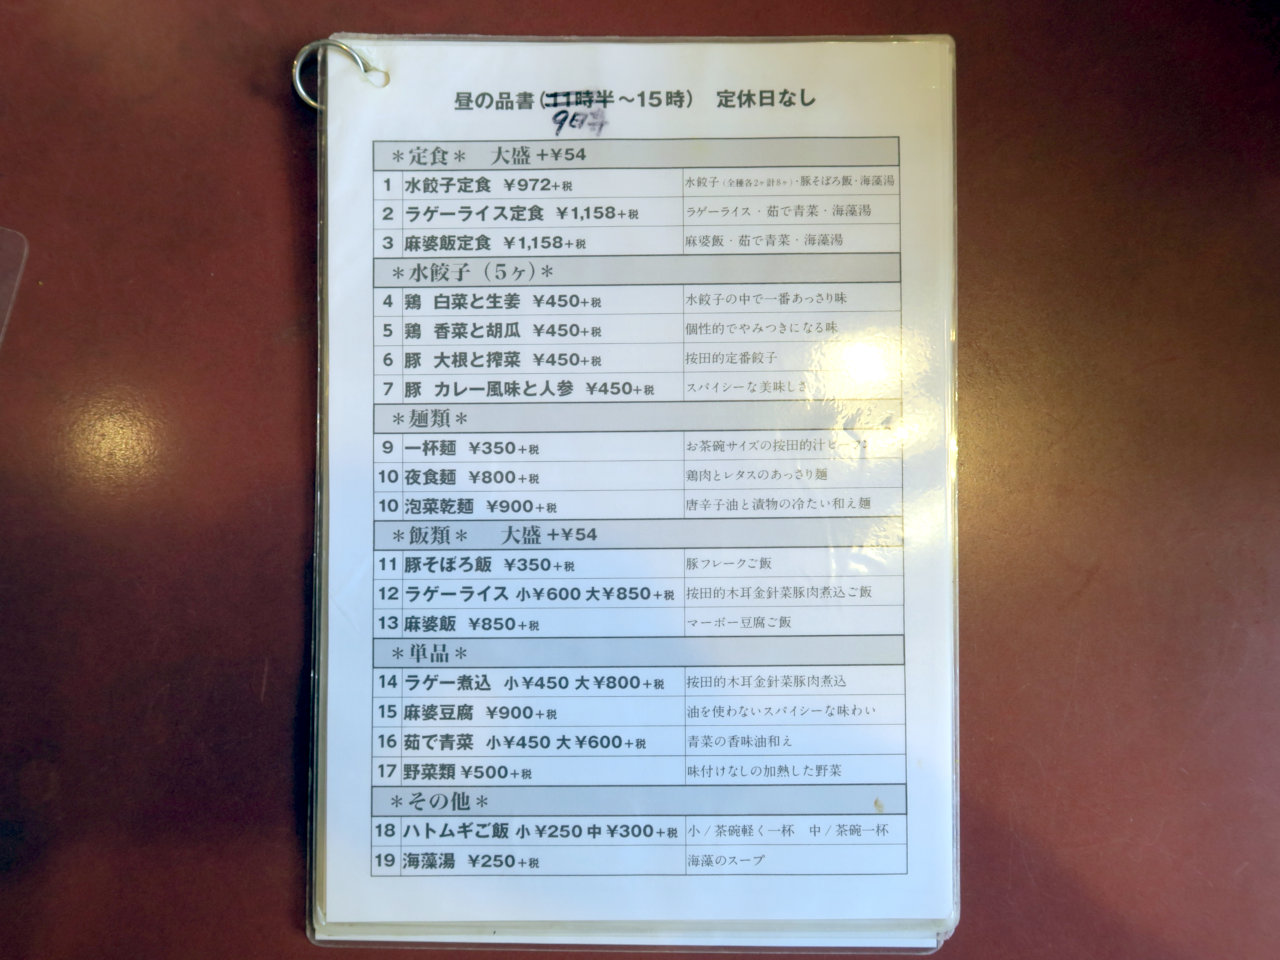 昼の品書(11時半～15時) 定休日なし
9時
＊定食＊ 大盛+¥54
1 水餃子定食 ¥972+税 水餃子(全種各2ヶ計8ヶ)・豚そぼろ飯・海藻湯
2 ラゲーライス定食 ¥1,158+税 ラゲーライス・茹で青菜・海藻湯
3 麻婆飯定食 ¥1,158+税 麻婆飯・茹で青菜・海藻湯
＊水餃子（5ヶ）＊
4 鶏 白菜と生姜 ¥450+税 水餃子の中で一番あっさり味
5 鶏 香菜と胡瓜 ¥450+税 個性的でやみつきになる味
6 豚 大根と搾菜 ¥450+税 按田的定番餃子
7 豚 カレー風味と人参 ¥450+税 スパイシーな美味しさ
＊麺類＊
9 一杯麺 ¥350+税 お茶碗サイズの按田的汁ビーフン
10 夜食麺 ¥800+税 鶏肉とレタスのあっさり麺
10 泡菜乾麺 ¥900+税 唐辛子油と漬物の冷たい和え麺
＊飯類＊ 大盛+¥54
11 豚そぼろ飯 ¥350+税 豚フレークご飯
12 ラゲーライス 小¥600 大¥850+税 按田的木耳金針菜豚肉煮込ご飯
13 麻婆飯 ¥850+税 マーボー豆腐ご飯
＊単品＊
14 ラゲー煮込 小¥450 大¥800+税 按田的木耳金針菜豚肉煮込
15 麻婆豆腐 ¥900+税 油を使わないスパイシーな味わい
16 茹で青菜 小¥450 大¥600+税 青菜の香味油和え
17 野菜類 ¥500+税 味付けなしの加熱した野菜
＊その他＊
18 ハトムギご飯 小¥250 中¥300+税 小/茶碗軽く一杯 中/茶碗一杯
19 海藻湯 ¥250+税 海藻のスープ